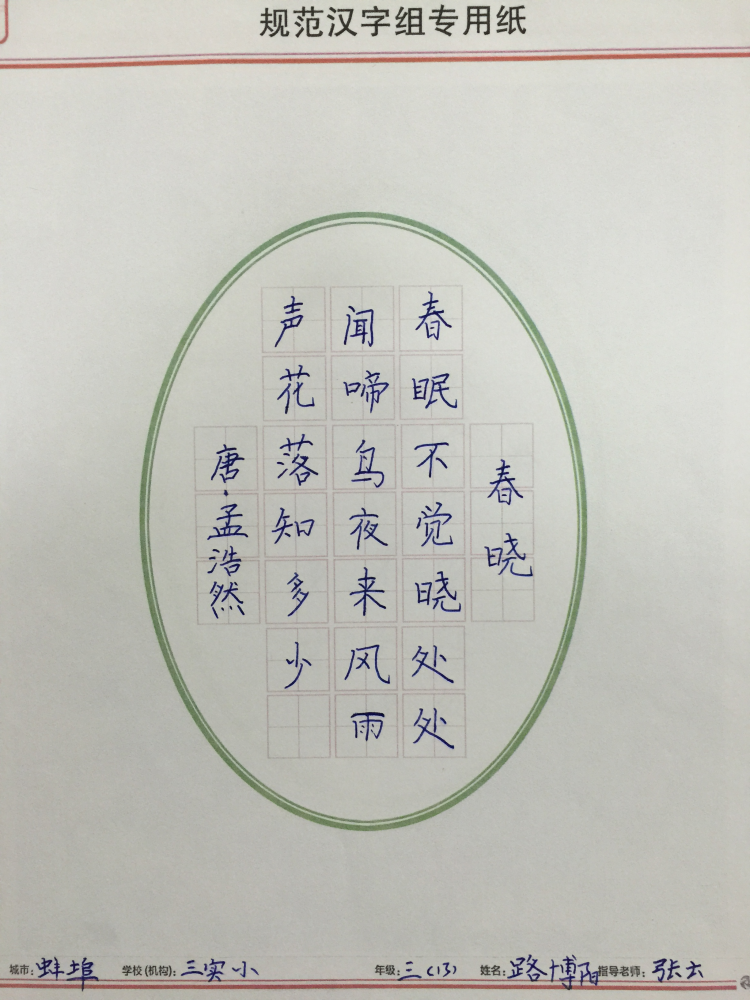 规范汉字组专用纸
春晓
春眠不觉晓处处
闻啼鸟夜来风雨
声花落知多少
唐·孟浩然
城市：蚌埠 学校(机构)：三实小 年级：三(13) 姓名：路博阳 指导老师：张云